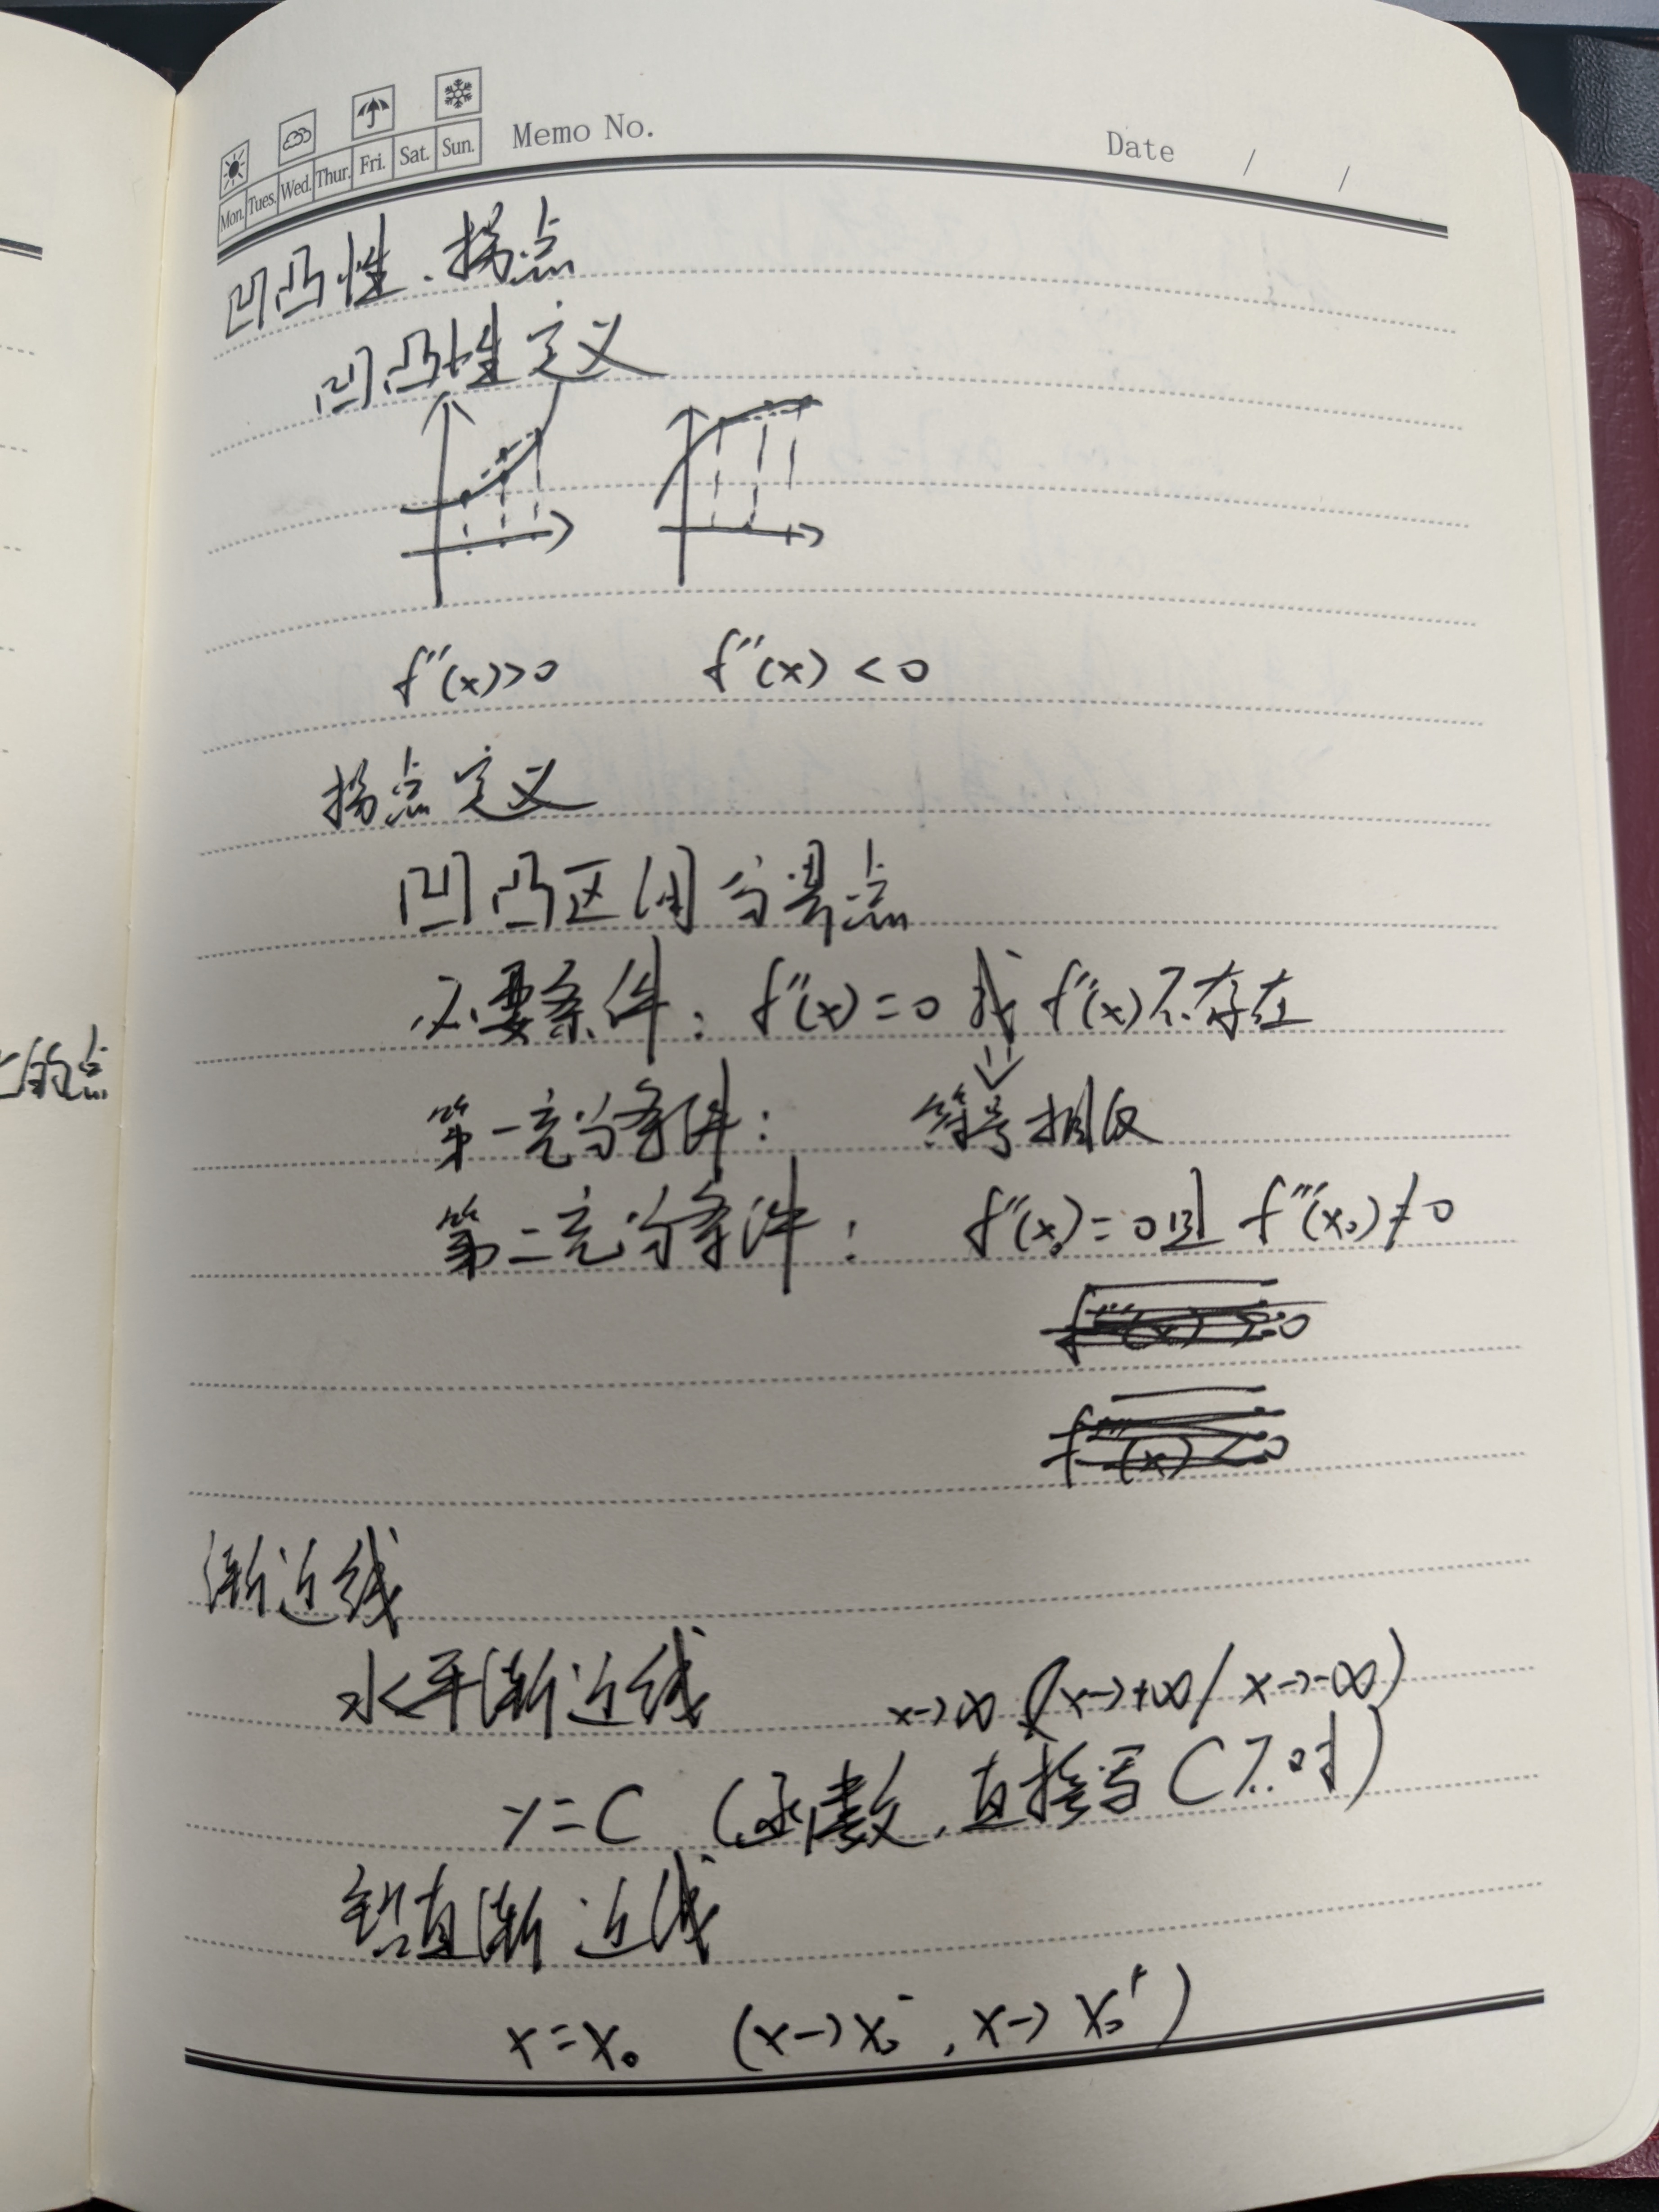 Mon. Tues. Wed. Thur. Fri. Sat. Sun. Memo No. Date / /
凹凸性、拐点
凹凸性定义
f''(x)>0 f''(x)<0
拐点定义
凹凸区间分界点
必要条件: f''(x)=0 或 f''(x)不存在
上的点
第一充分条件: 符号相反
第二充分条件: f''(x₀)=0且 f'''(x₀)≠0
f'''(x)>0
f'''(x)<0
渐近线
水平渐近线 x→∞ (x→+∞/x→-∞)
y=C (函数,直接写C不对)
铅直渐近线
x=x₀ (x→x₀⁻, x→x₀⁺)